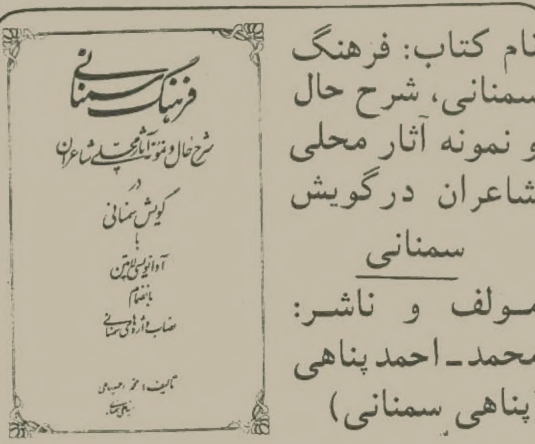 نام کتاب: فرهنگ
سمنانی، شرح حال
و نمونه آثار محلی
شاعران در گویش
سمنانی
مولف و ناشر:
محمد ـ احمد پناهی
(پناهی سمنانی)
فرهنگ سمنانی
شرح حال و نمونه آثار محلی شاعران
در
گویش سمنانی
با
آوانویسی لاتین
بانضمام
نصاب واژه‌های سمنانی
تالیف: محمد احمد پناهی